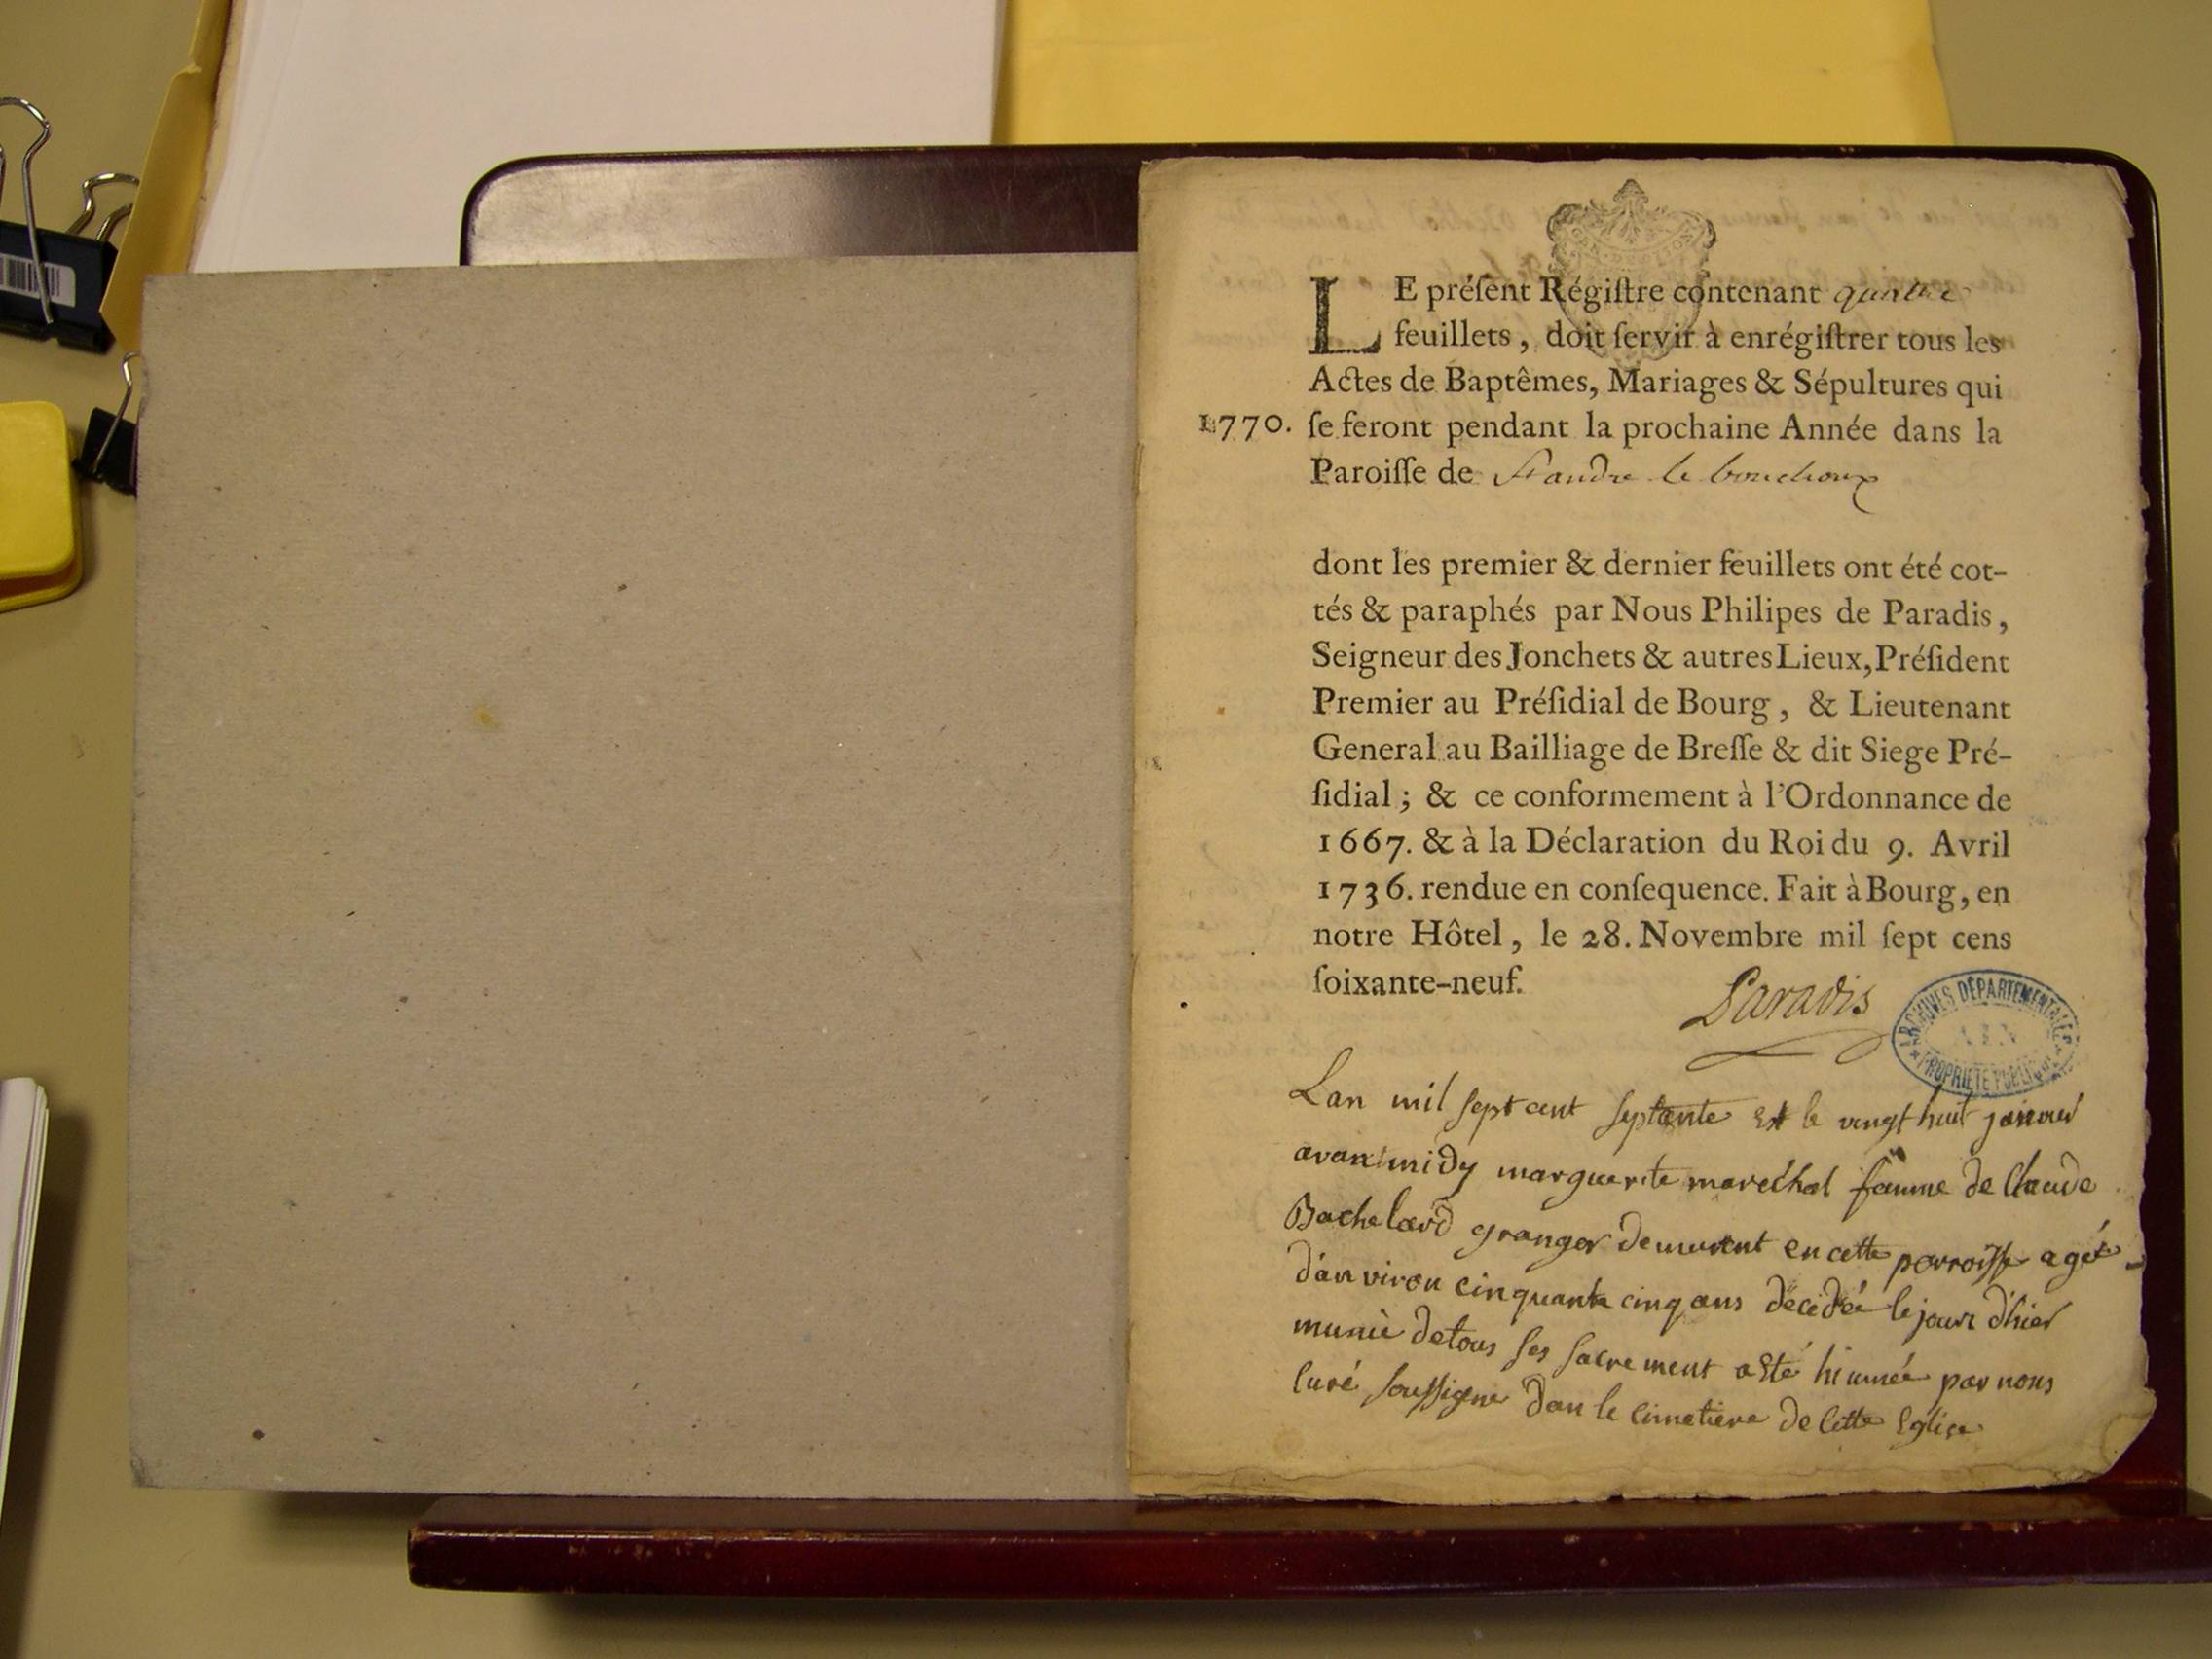 LE préſent Régiſtre contenant quattre
feuillets, doit ſervir à enrégiſtrer tous les
Actes de Baptêmes, Mariages & Sépultures qui
1770. ſe feront pendant la prochaine Année dans la
Paroiſſe de St andre le bouchoux
dont les premier & dernier feuillets ont été cot-
tés & paraphés par Nous Philipes de Paradis,
Seigneur des Jonchets & autres Lieux, Préſident
Premier au Préſidial de Bourg, & Lieutenant
General au Bailliage de Breſſe & dit Siege Pré-
ſidial; & ce conformement à l'Ordonnance de
1667. & à la Déclaration du Roi du 9. Avril
1736. rendue en conſequence. Fait à Bourg, en
notre Hôtel, le 28. Novembre mil ſept cens
ſoixante-neuf.
Paradis
ARCHIVES DÉPARTEMENTALES
AIN
PROPRIÉTÉ PUBLIQUE
Lan mil sept cent septente Et le vingt huit janvier
avant midy marguerite marechal famme de Claude
Bachelard granger demurent en cette parroisse agée
d'anviron cinquante cinq ans décédée le jour d'hier
munie de tous ses sacrement a Eté hiumée par nous
Curé soussigne dan le cimetiere de Cette Eglise